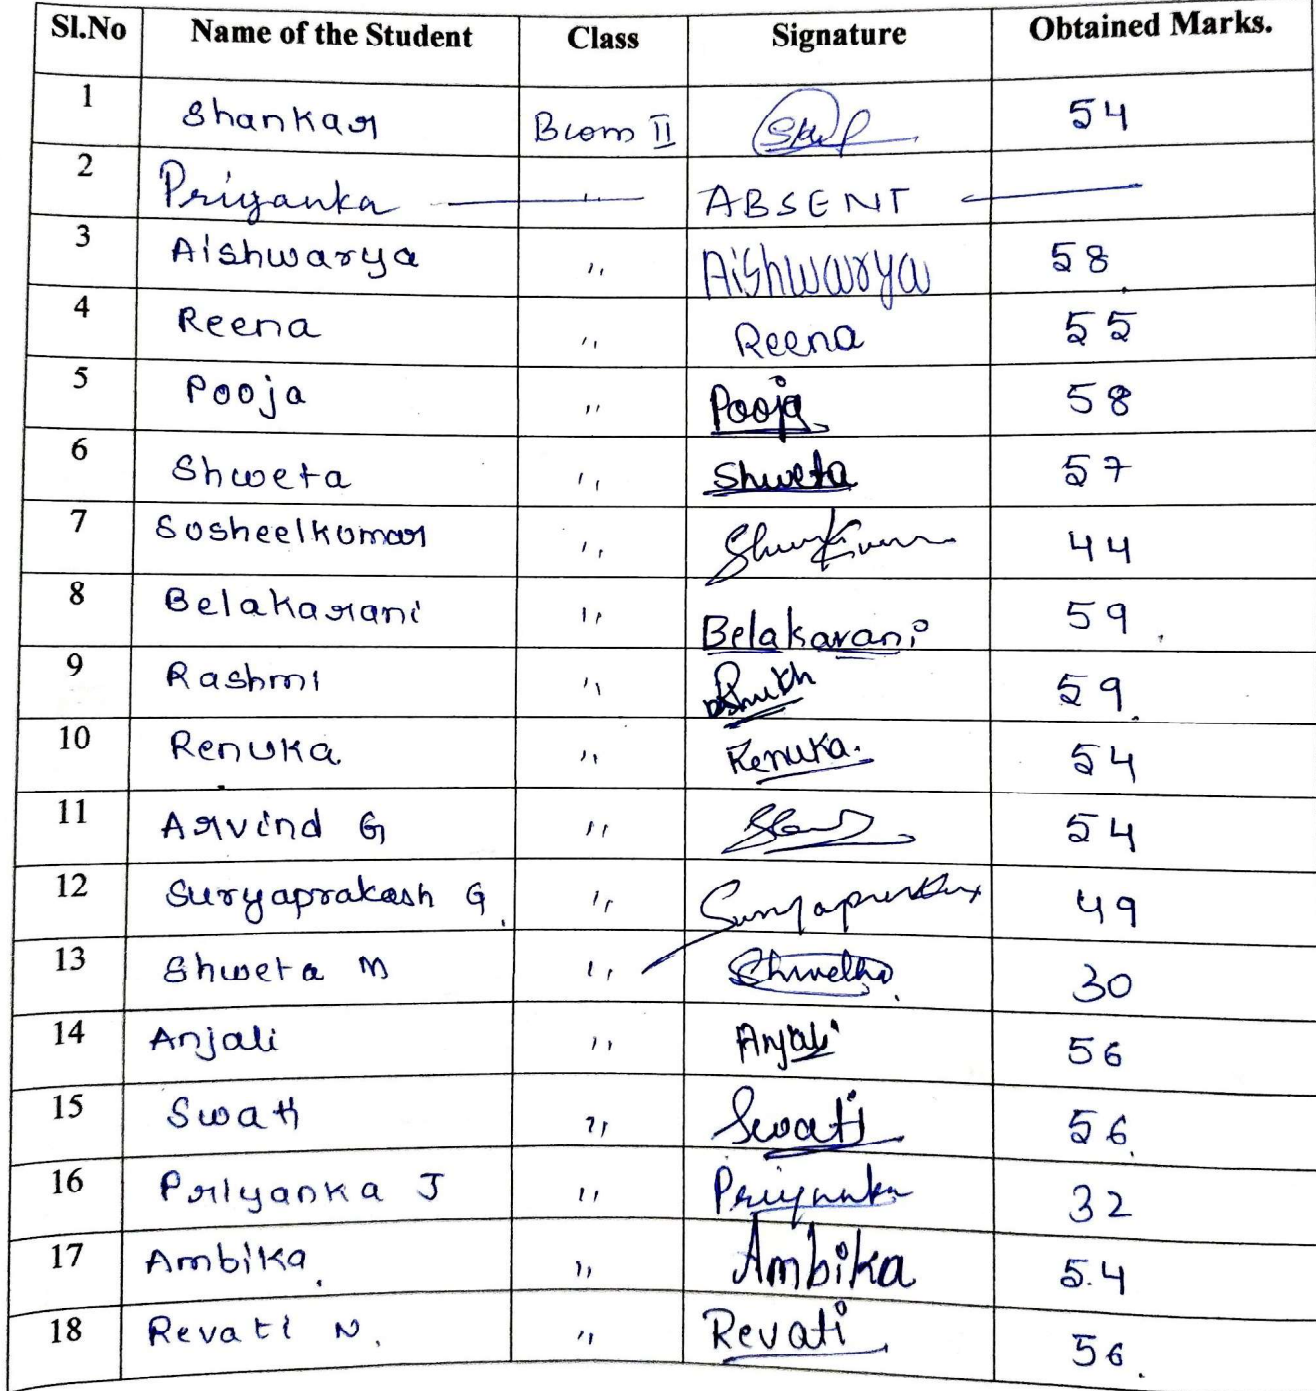 Sl.No Name of the Student Class Signature Obtained Marks.
1 Shankar Bcom II 54
2 Priyanka " ABSENT
3 Aishwarya " Aishwarya 58
4 Reena " Reena 55
5 Pooja " Pooja 58
6 Shweta " Shweta 57
7 Susheelkumar " 44
8 Belakarani " Belakarani 59
9 Rashmi " 59
10 Renuka " Renuka. 54
11 Arvind G " 54
12 Suryaprakash G " 49
13 Shweta M " 30
14 Anjali " Anjali 56
15 Swati " Swati 56
16 Priyanka J " Priyanka 32
17 Ambika " Ambika 54
18 Revati N. " Revati 56